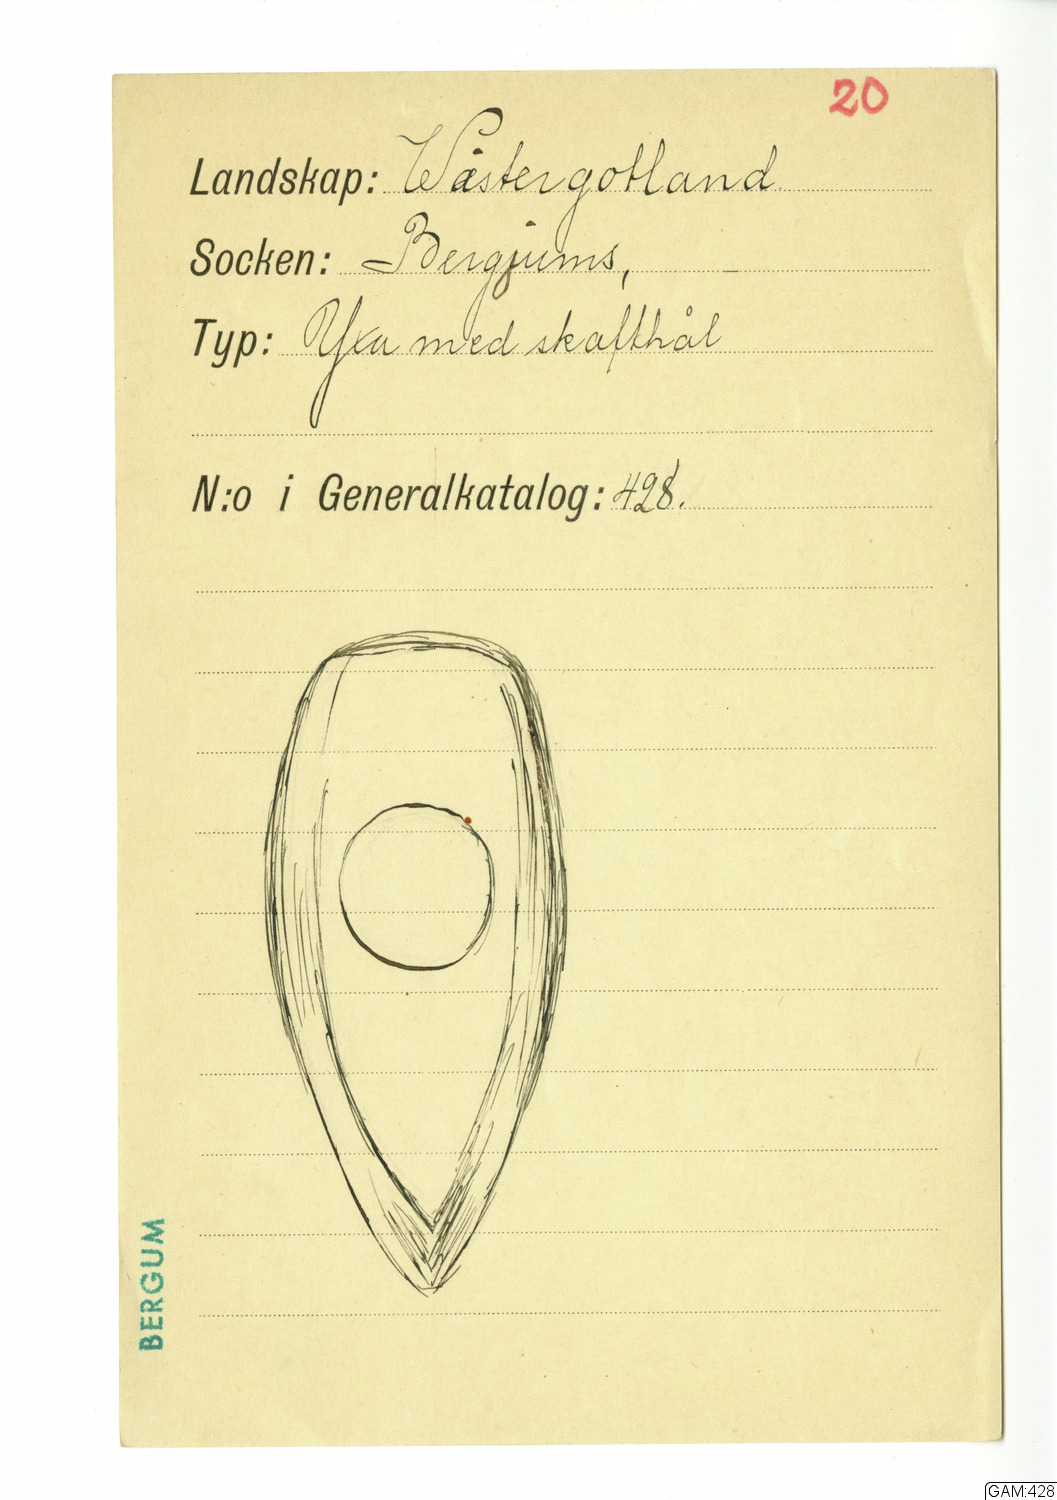 20
Landskap: Wästergotland
Socken: Bergjums,
Typ: Yxa med skafthål
N:o i Generalkatalog: 428.
BERGUM
GAM:428